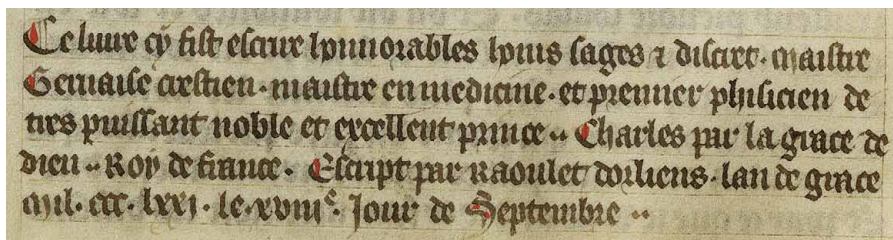 Ce liure cy fist escrire honnorables homs sages ⁊ discret. maistre
Geruaise crestien. maistre en medicine. et premier phisicien de
tres puissant noble et excellent prince.. Charles par la grace de
dieu.. Roy de france. Escript par Raoulet dorliens. lan de grace
mil. ccc. lxxj. le. xviije. Jour de Septembre..